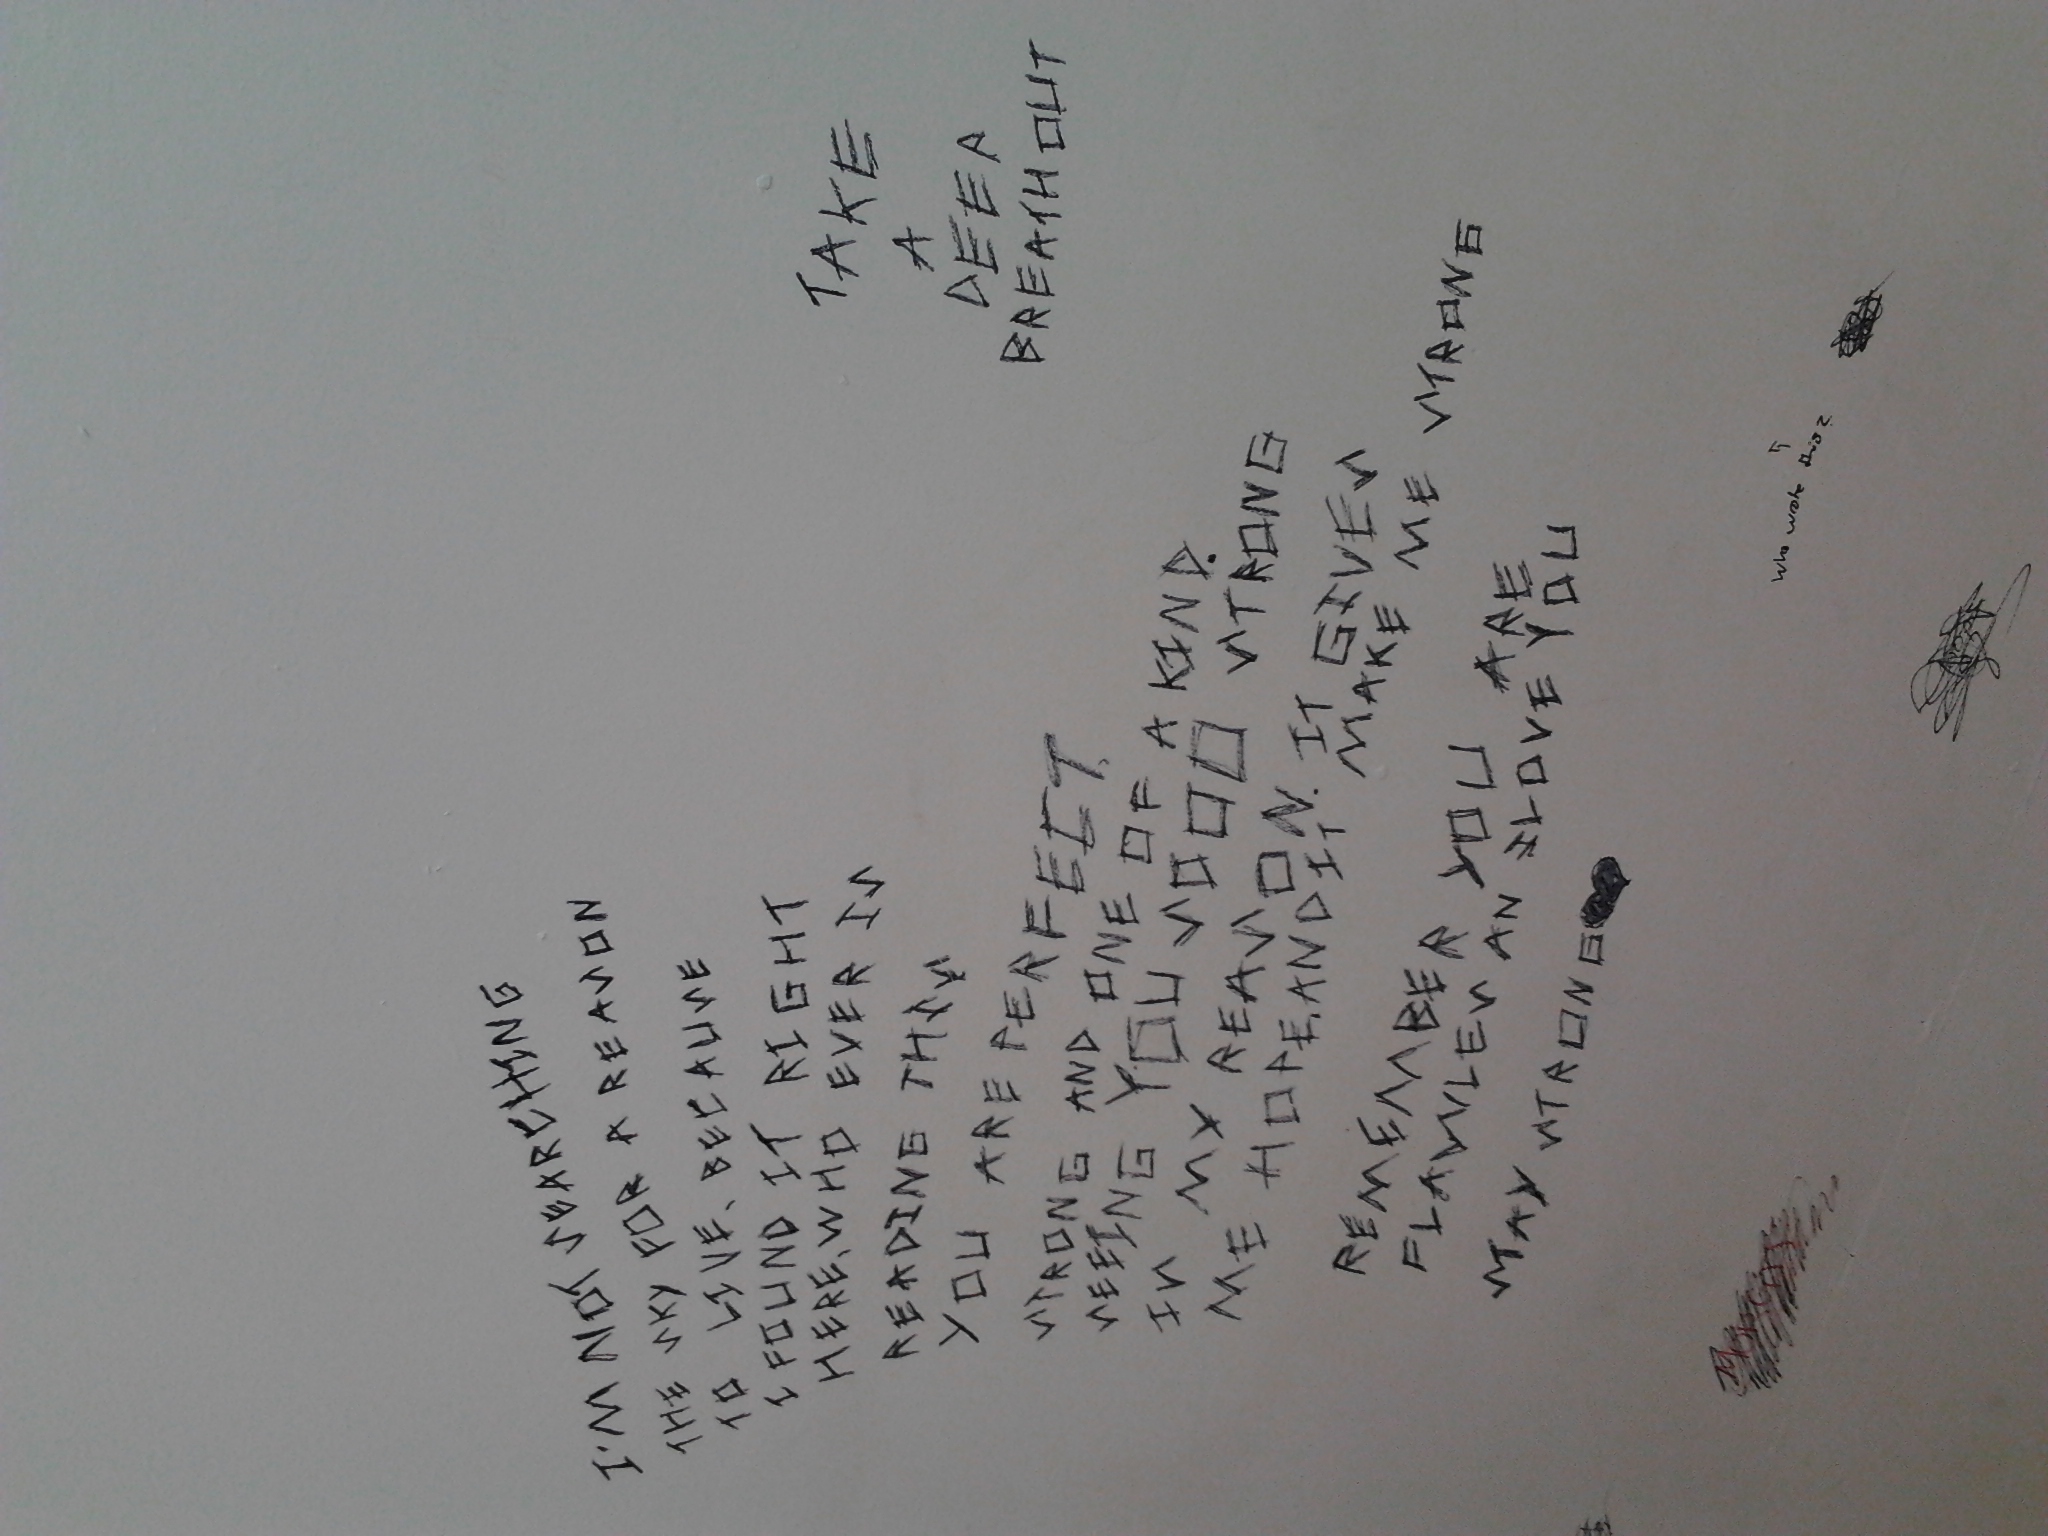 I'M NOT SEARCHING
THE SKY FOR A REASON
TO LIVE, BECAUSE
I FOUND IT RIGHT
HERE, WHO EVER IS
READING THIS!
YOU ARE PERFECT,
STRONG AND ONE OF A KIND.
SEEING YOU SOOO STRONG
IS MY REASON. IT GIVES
ME HOPE, AND IT MAKE ME STRONG
REMEMBER YOU ARE
FLAWLES AN I LOVE YOU
STAY STRONG
TAKE
A
DEEP
BREATH OUT
who wrote this?